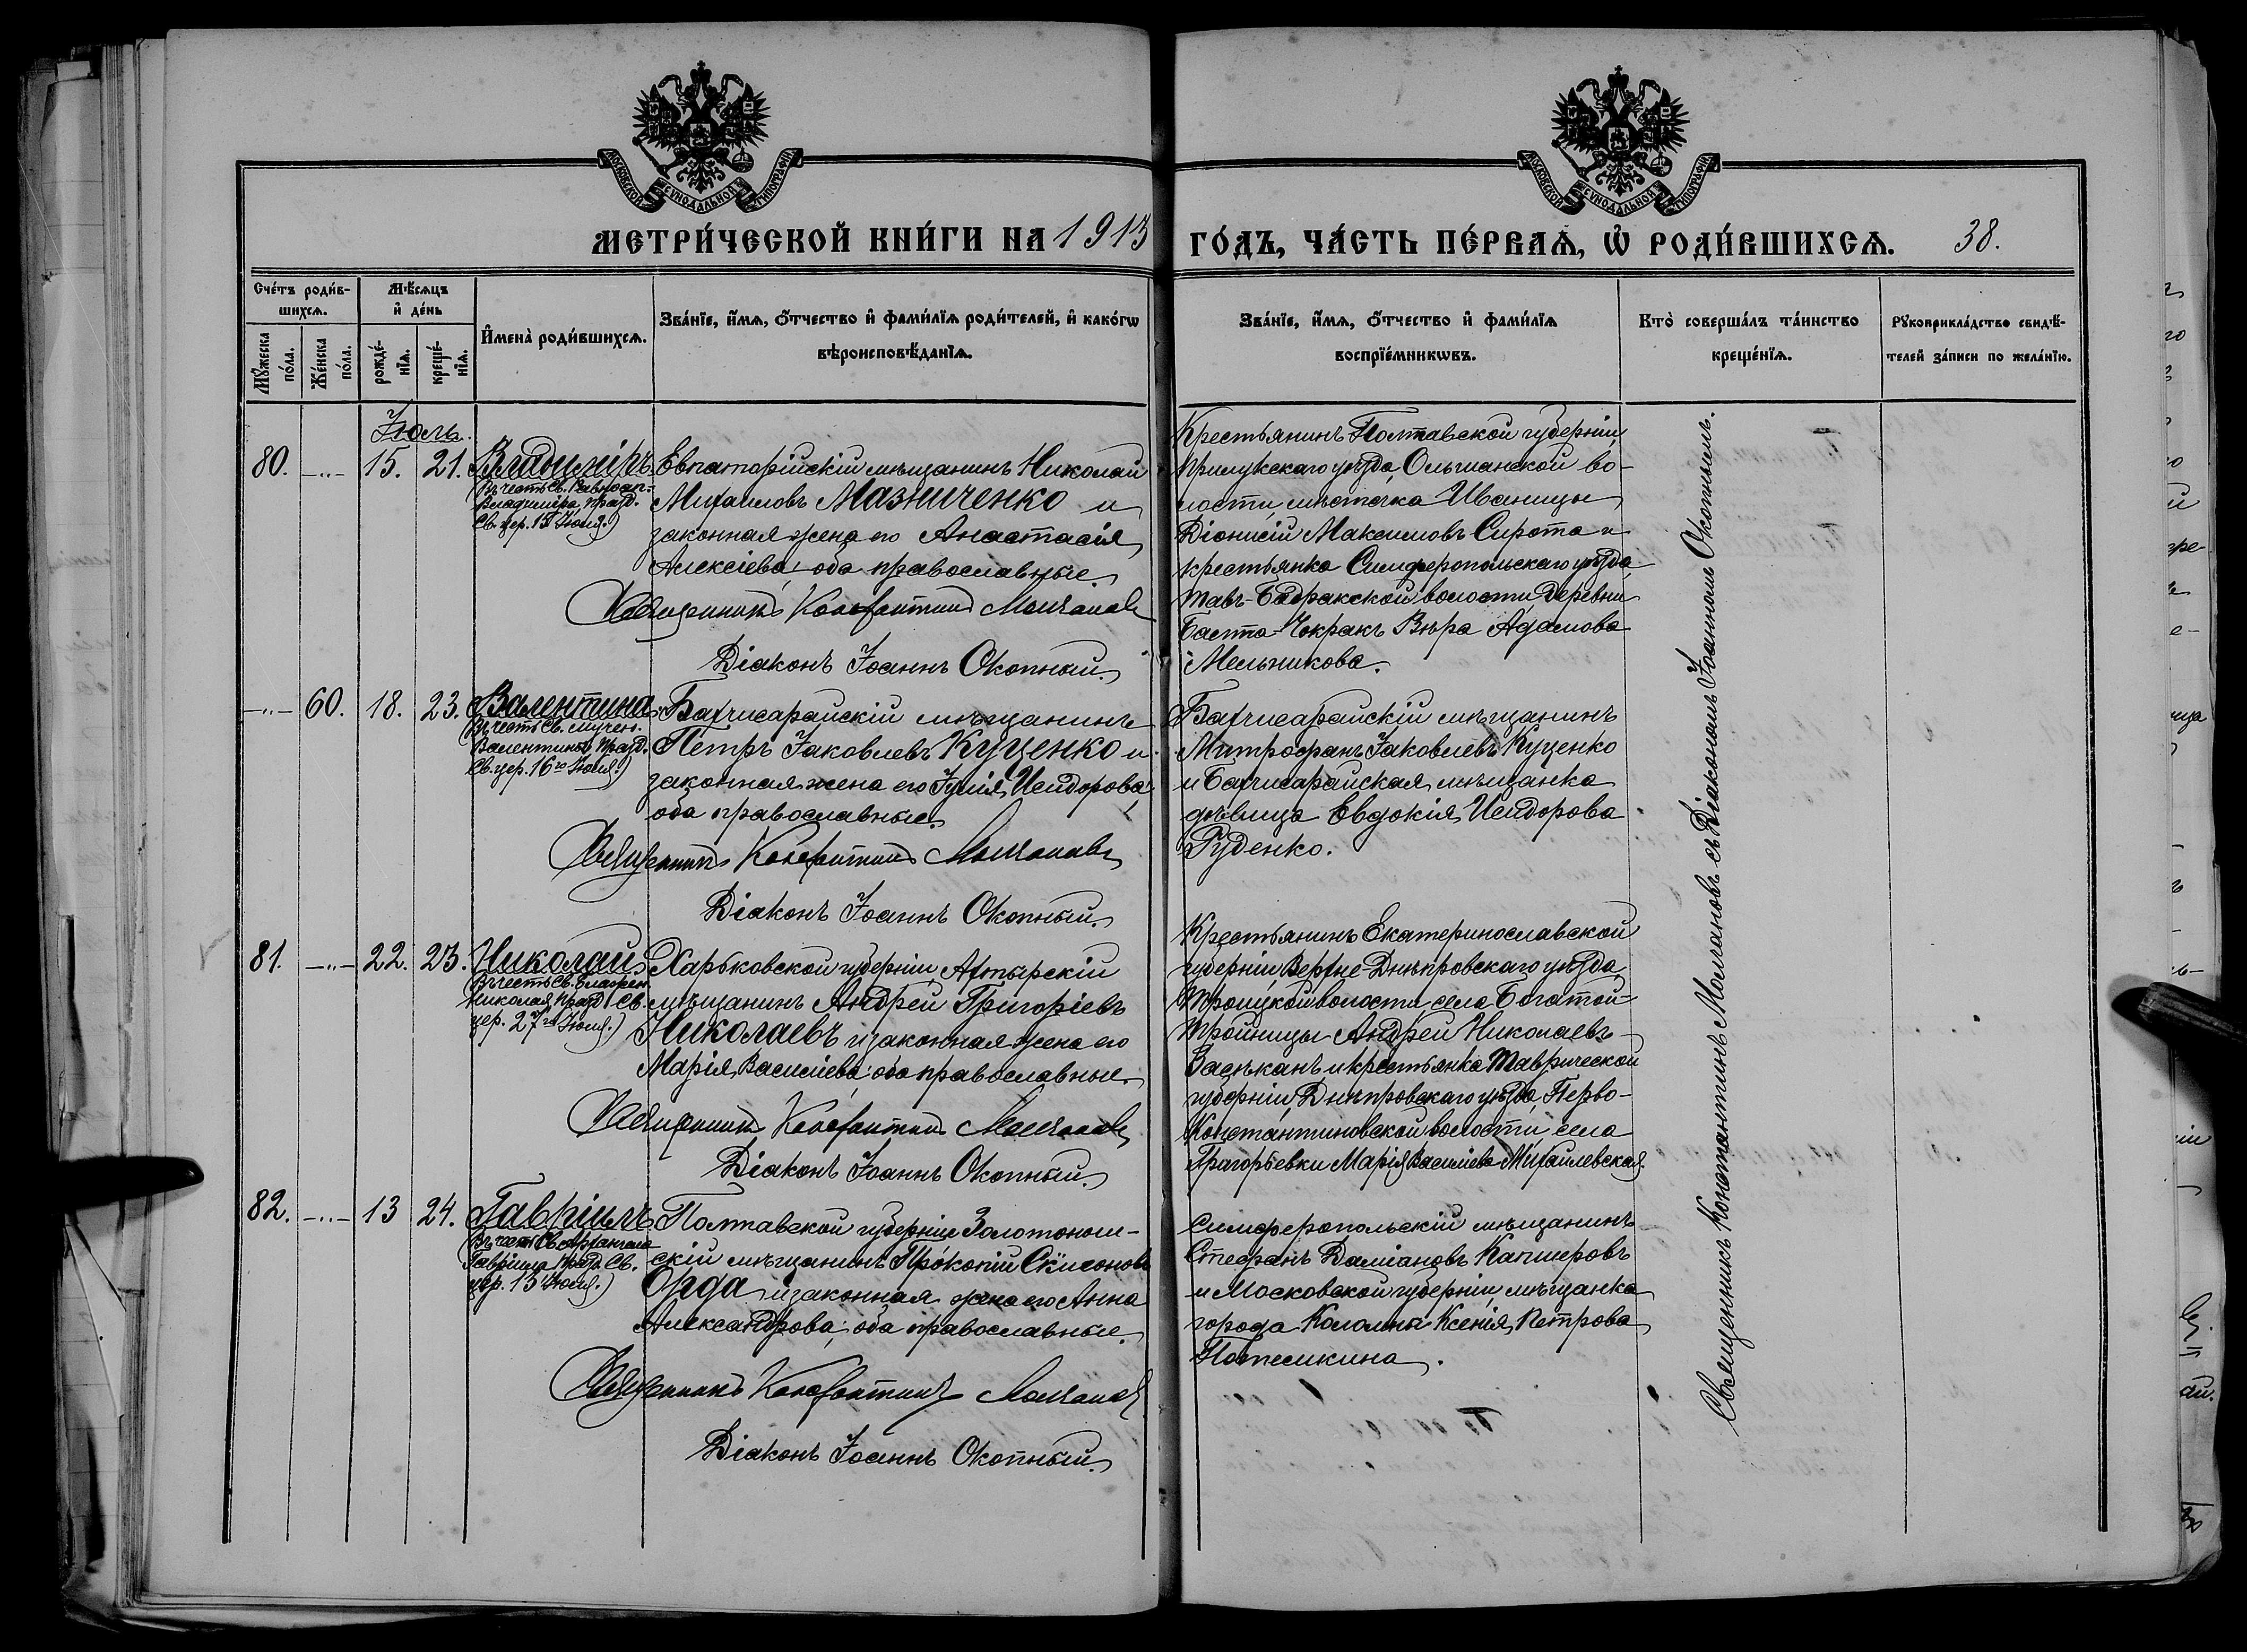 МОСКОВСКОЙ СѴНОДАЛЬНОЙ ТИПОГРАФІИ
МОСКОВСКОЙ СѴНОДАЛЬНОЙ ТИПОГРАФІИ
МЕТРИ́ЧЕСКОЙ КНИ́ГИ НА 1913
ГО́ДЪ, ЧА́СТЬ ПЕ́РВАѦ, Ѡ҆ РОДИ́ВШИХСѦ. 38.
Сче́тъ роди́в-
шихсѧ.
Мꙋ́жеска по́ла.
Же́нска по́ла.
Мѣ́сѧцъ
и҆ де́нь
рожде́-
нїѧ.
креще́-
нїѧ.
И҆мена̀ роди́вшихсѧ.
Зва́нїе, и҆́мѧ, ѻ҆́тчество и҆ фами́лїѧ роди́телей, и҆ како́гѡ
вѣроисповѣ́данїѧ.
Зва́нїе, и҆́мѧ, ѻ҆́тчество и҆ фами́лїѧ
воспрїе́мникѡвъ.
Кто̀ соверша́лъ та́инство
креще́нїѧ.
Рꙋкоприкла́дство свидѣ́-
телей за́писи по жела́нїю.
Іюль.
80. -"- 15. 21. Владиміръ
(Въ честь Св. Равноап.
Владиміра, празд.
Св. цер. 15 Іюля.)
Евпаторійскій мѣщанинъ Николай
Михаиловъ Мазниченко и
законная жена его Анастасія
Алексіева; оба православные.
Священникъ Константинъ Молчановъ
Діаконъ Іоаннъ Окопный.
Крестьянинъ Полтавской губерніи,
Прилукскаго уѣзда, Ольшанской во-
лости, мѣстечка Иваницы
Діонисій Максимовъ Сирота и
крестьянка Симферопольскаго уѣзда,
Тавъ-Бадракской волости, деревни
Баста-Чокракъ Вѣра Адамова
Мельникова.
-"- 60. 18. 23. Валентина
(Въ честь Св. мучен.
Валентины, празд.
Св. цер. 16го Іюля.)
Бахчисарайскій мѣщанинъ
Петръ Іаковлевъ Куценко и
законная жена его Іулія Исидорова;
оба православные.
Священникъ Константинъ Молчановъ
Діаконъ Іоаннъ Окопный.
Бахчисарайскій мѣщанинъ
Митрофанъ Іаковлевъ Куценко
и Бахчисарайская мѣщанка
дѣвица Евдокія Исидорова
Руденко.
81. -"- 22. 23. Николай
(Въ честь Св. блажен.
Николая, празд. Св.
цер. 27го Іюля.)
Харьковской губерніи, Ахтырскій
мѣщанинъ Андрей Григоріевъ
Николаевъ и законная жена его
Марія Василіева; оба православные.
Священникъ Константинъ Молчановъ
Діаконъ Іоаннъ Окопный.
Крестьянинъ Екатеринославской
губерніи Верхне-Днѣпровскаго уѣзда,
Троицкой волости, села
Андрей Николаевъ
и крестьянка Таврической
губерніи, Днѣпровскаго уѣзда, Перво-
Константиновской волости, села
Григорьевки Марія Василіева Михайлевская.
82. -"- 13 24. Гавріилъ
(Въ честь Св. Архангела
Гавріила, празд. Св.
цер. 13 Іюля.)
Полтавской губерніи Золотонош-
скій мѣщанинъ Прокопій
Орда и законная жена его Анна
Александрова; оба православные.
Священникъ Константинъ Молчановъ
Діаконъ Іоаннъ Окопный.
Симферопольскій мѣщанинъ
Стефанъ Даміановъ Капшеровъ
и Московской губерніи, мѣщанка
города Коломны Ксенія Петрова
Потемкина.
Священникъ Константинъ Молчановъ съ Діакономъ Іоанномъ Окопнымъ.